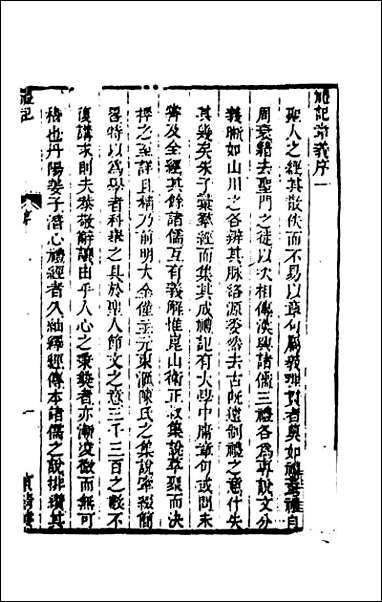 禮記章義序一
聖人之經其散佚而不易以章句屬義理貫者莫如禮蓋禮自
周衰籍去聖門之徒以次相傳漢興諸儒三禮各為專說文分
義晰如山川之各辨其脈絡源委然去古旣遠制禮之意什失
其幾矣朱子彙羣經而集其成禮記有大學中庸章句或問未
嘗及全經其餘諸儒互有義解惟崑山衛正叔集說萃聚而決
擇之至詳且精乃前明大全僅主元東滙陳氏之集說寧擬簡
畧特以為學者科舉之具於聖人節文之意三千三百之數不
復講求則夫恭敬辭讓由乎人心之秉彝者亦漸浸微而無可
稽也丹陽姜子潛心禮經者久紬繹經傳本諸儒之說排纘其
禮記
序
一